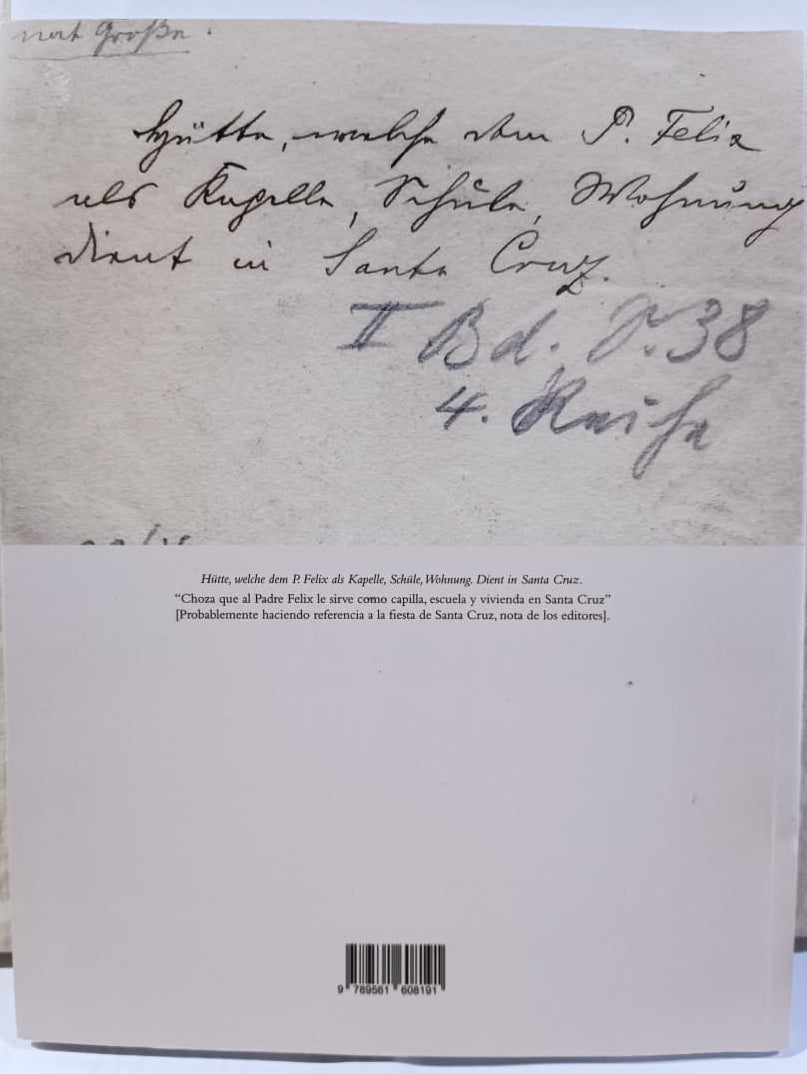 nat. Große.
Hütte, welche dem P. Felix
als Kapelle, Schule, Wohnung
dient in Santa Cruz.
II Bd. S. 38
4. Reihe
Hütte, welche dem P. Felix als Kapelle, Schüle, Wohnung. Dient in Santa Cruz.
“Choza que al Padre Felix le sirve como capilla, escuela y vivienda en Santa Cruz”
[Probablemente haciendo referencia a la fiesta de Santa Cruz, nota de los editores].
9 789561 608191